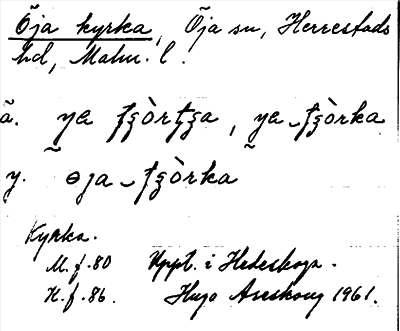 Öja kyrka, Öja sn, Herrestads
hd, Malm. l.
ä. ya , ya
y. ɵja
Kyrka.
M. f. 80 Uppt. i Hedeskoga.
K. f. 86. Hugo Areskoug 1961.